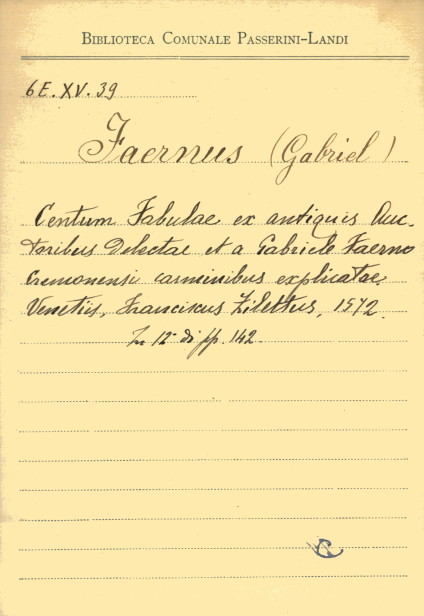 BIBLIOTECA COMUNALE PASSERINI-LANDI
6E.XV.39
Faernus (Gabriel)
Centum Fabulae ex antiquis Auc-
toribus Delectae et a Gabriele Faerno
Cremonensi carminibus explicatae.
Venetiis, Franciscus Zilettus, 1572.
In 12° di pp. 142.